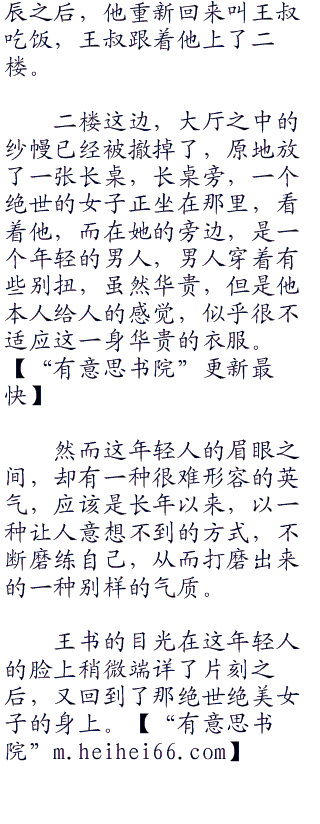 辰之后，他重新回来叫王叔
吃饭，王叔跟着他上了二
楼。
二楼这边，大厅之中的
纱幔已经被撤掉了，原地放
了一张长桌，长桌旁，一个
绝世的女子正坐在那里，看
着他，而在她的旁边，是一
个年轻的男人，男人穿着有
些别扭，虽然华贵，但是他
本人给人的感觉，似乎很不
适应这一身华贵的衣服。
【“有意思书院”更新最
快】
然而这年轻人的眉眼之
间，却有一种很难形容的英
气，应该是长年以来，以一
种让人意想不到的方式，不
断磨练自己，从而打磨出来
的一种别样的气质。
王书的目光在这年轻人
的脸上稍微端详了片刻之
后，又回到了那绝世绝美女
子的身上。【“有意思书
院”m.heihei66.com】